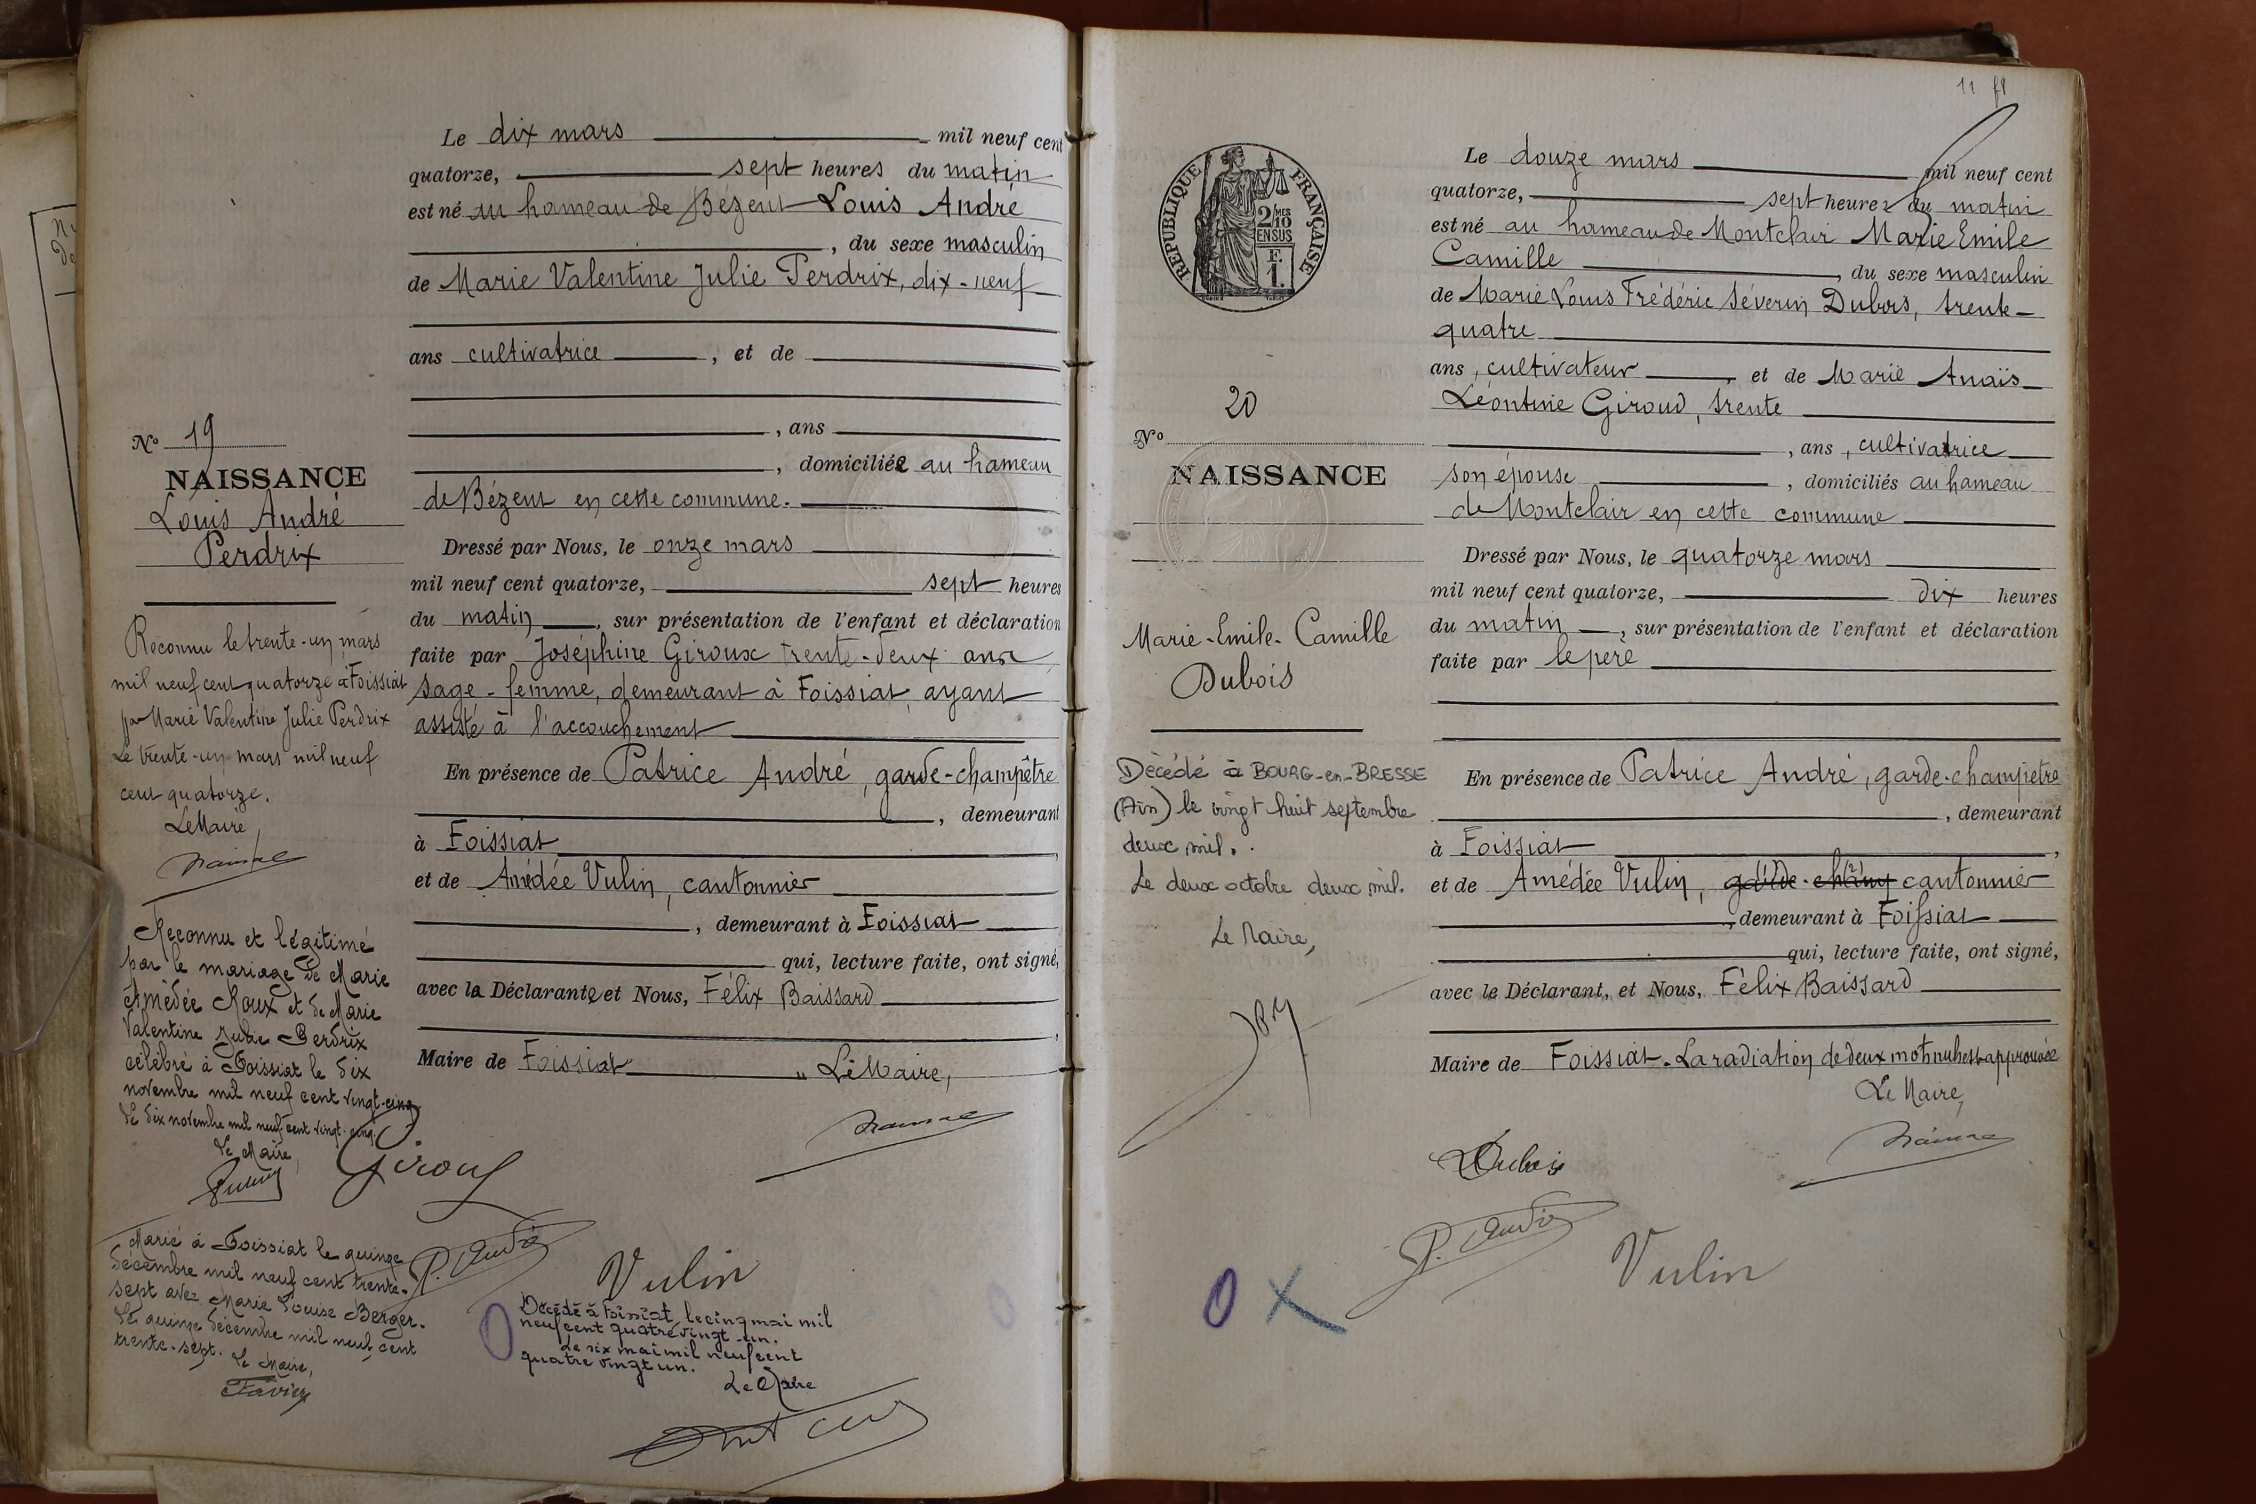 Le dix mars mil neuf cent
quatorze, sept heures du matin
est né au hameau de Bézent Louis André
, du sexe masculin
de Marie Valentine Julie Perdrix, dix-neuf
ans cultivatrice, et de
, ans
, domiciliée au hameau
de Bézent en cette commune.
Dressé par Nous, le onze mars
mil neuf cent quatorze, sept heures
du matin, sur présentation de l'enfant et déclaration
faite par Joséphine Giroux trente-deux ans
sage-femme, demeurant à Foissiat, ayant
assisté à l'accouchement
En présence de Patrice André, garde-champêtre
, demeurant
à Foissiat
et de Amédée Vulin, cantonnier
, demeurant à Foissiat
qui, lecture faite, ont signé,
avec la Déclarante et Nous, Félix Baissard
Maire de Foissiat Le Maire,
Giroux
P. André
Vulin
Décédé à Foissiat le cinq mai mil
neuf cent quatre vingt-un.
Le six mai mil neuf cent
quatre vingt un.
Le Maire
No 19
NAISSANCE
Louis André
Perdrix
Reconnu le trente-un mars
mil neuf cent quatorze à Foissiat
par Marie Valentine Julie Perdrix
Le trente-un mars mil neuf
cent quatorze.
Le Maire,
Reconnu et légitimé
par le mariage de Marie
Amédée Roux et de Marie
Valentine Julie Perdrix
célébré à Foissiat le dix
novembre mil neuf cent vingt-cinq
Le dix novembre mil neuf cent vingt-cinq.
Le Maire,
Marié à Foissiat le quinze
décembre mil neuf cent trente-
sept avec Marie Louise Berger.
Le quinze décembre mil neuf cent
trente-sept. Le Maire,
Favier
11
REPUBLIQUE FRANÇAISE
2/10 MES
EN SUS
F.
1.
Le douze mars mil neuf cent
quatorze, sept heures du matin
est né au hameau de Montclair Marie Emile
Camille, du sexe masculin
de Marie Louis Frédéric Séverin Dubois, trente-
quatre
ans, cultivateur, et de Marie Anaïs
Léontine Giroud, trente
, ans, cultivatrice
son épouse, domiciliés au hameau
de Montclair en cette commune
Dressé par Nous, le quatorze mars
mil neuf cent quatorze, dix heures
du matin, sur présentation de l'enfant et déclaration
faite par le père
En présence de Patrice André, garde-champêtre
, demeurant
à Foissiat,
et de Amédée Vulin, garde-cham cantonnier
, demeurant à Foissiat
qui, lecture faite, ont signé,
avec le Déclarant, et Nous, Félix Baissard
Maire de Foissiat. La radiation de deux mots nuls est approuvée
Le Maire,
Dubois
P. André
Vulin
20
No
NAISSANCE
Marie-Emile-Camille
Dubois
Décédé à BOURG-en-BRESSE
(Ain) le vingt huit septembre
deux mil.
Le deux octobre deux mil.
Le Maire,